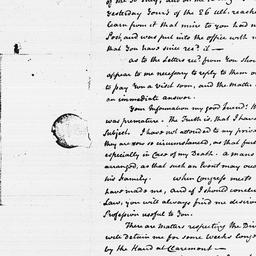 Yesterday yours of the 26 ult reached
learn from it that mine to you had n
Post, and was put into the office with m
that You have since recd. it —
as to the Letters recd. from You shou
appear to me necessary to reply to them o
to pay You a Visit soon, and the Matter
an immediate answer.
Your information my good Friend: It
was premature. The Truth is, that I have
Subject. I have not attended to my priva
they are now so circumstanced, as that fur
especially in Case of my Death. A man
arranged, as that such an Event may
his Family. When Congress meets
have made me, and if I should
Law, you will always find me desirou
Profession useful to You.
There are matters respecting the Di
will detain me for some Weeks long
by the Hand at Claremont —